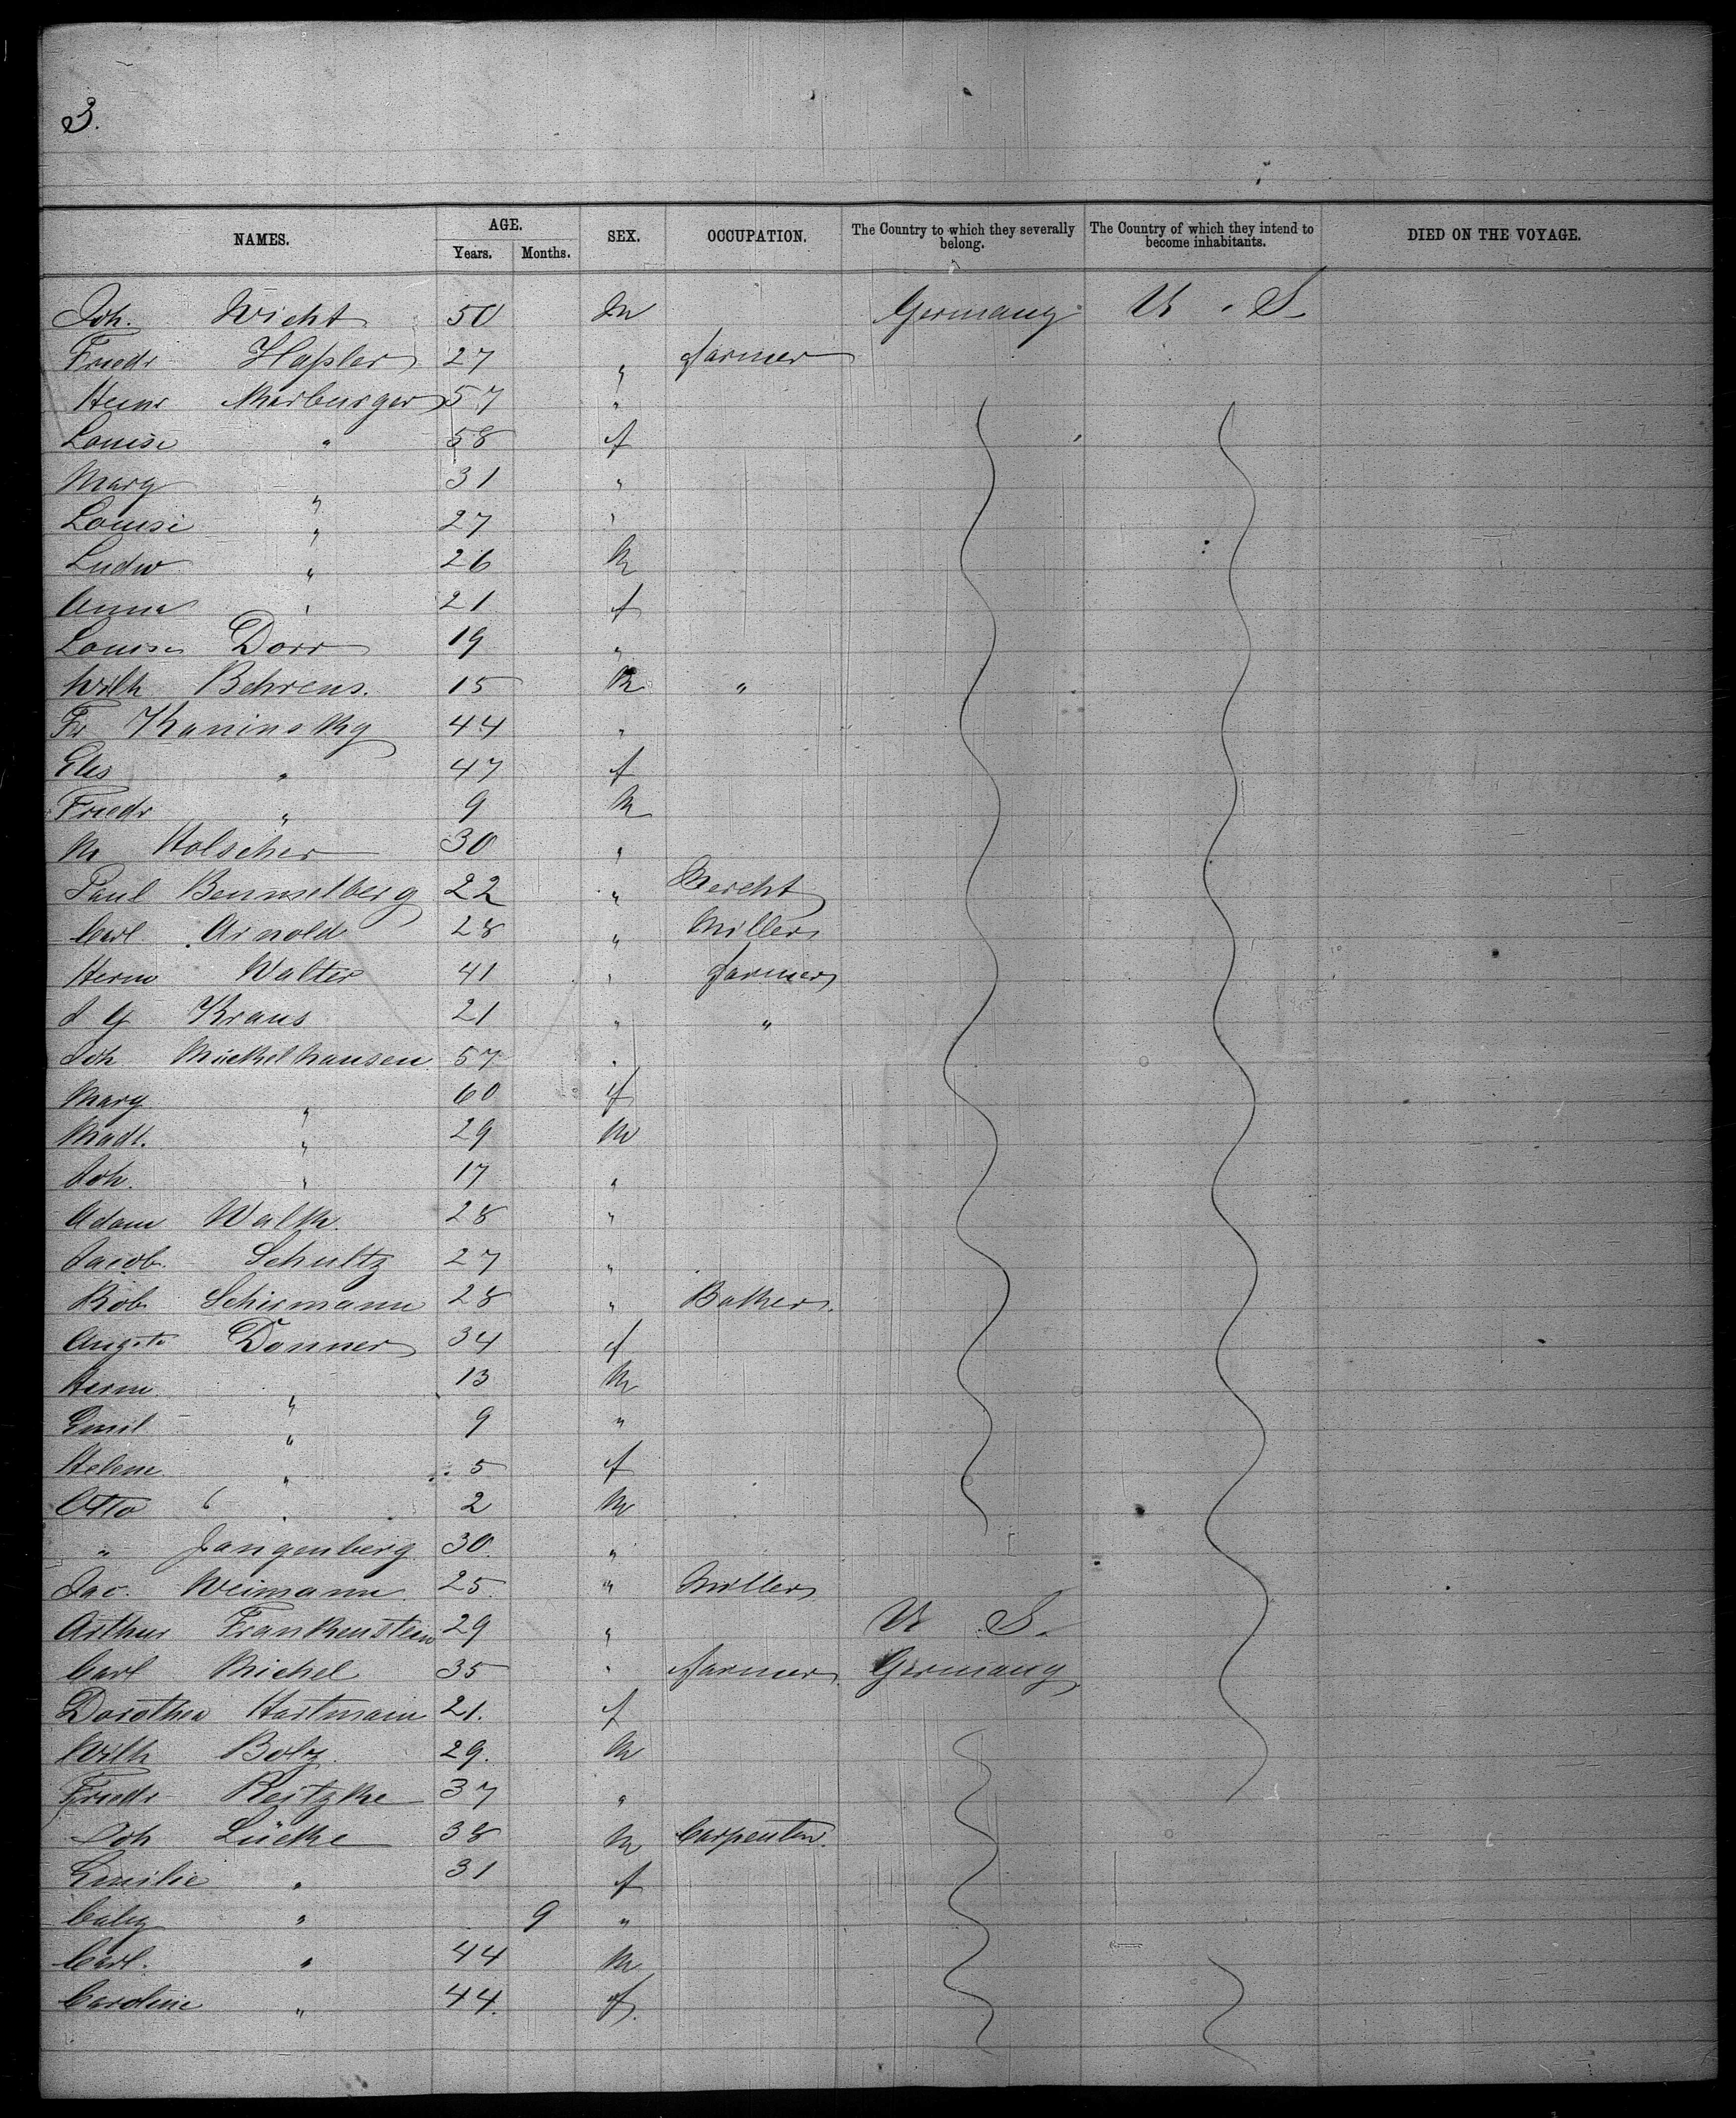 3.
NAMES. AGE. SEX. OCCUPATION. The Country to which they severally belong. The Country of which they intend to become inhabitants. DIED ON THE VOYAGE.
Years. Months.
Joh. Wicht 50 M Germany U. S.
Friedr Haßler 27 " farmer
Heinr Marburger 57 "
Louise " 58 f
Marg " 31 "
Louise " 27 "
Ludw " 26 M
Anna " 21 f
Louise Dorr 19 "
Wilh Behrens. 15 M "
Fr Kaninsky 44 "
Elis " 47 f
Friedr " 9 M
M Holscher 30 "
Paul 22 "
Carl Arnold 28 " Miller
Herm Walter 41 " farmer
J G Kraus 21 " "
Joh Mickelhausen 57 "
Marg " 60 f
" 29 M
Joh. " 17 "
Adam Walk 28 "
Jacob Schultz 27 "
Rob Schirmann 28 " Baker.
Augste Donner 34 f
Herm " 13 M
Emil " 9 "
Helene " 5 f
Otto " 2 M
" Jangenberg 30. "
Jac. Weimann 25. " Miller
Arthur Frankenstein 29 " U S.
Carl Michel 35 " farmer Germany
Dorothea Hartmann 21. f
Wilh Bolz 29. M
Friedr Reitzke 37 "
Joh Lücke 38 M Carpenter.
Emilie " 31 f
" 9 "
Carl. " 44 M
Caroline " 44. f.